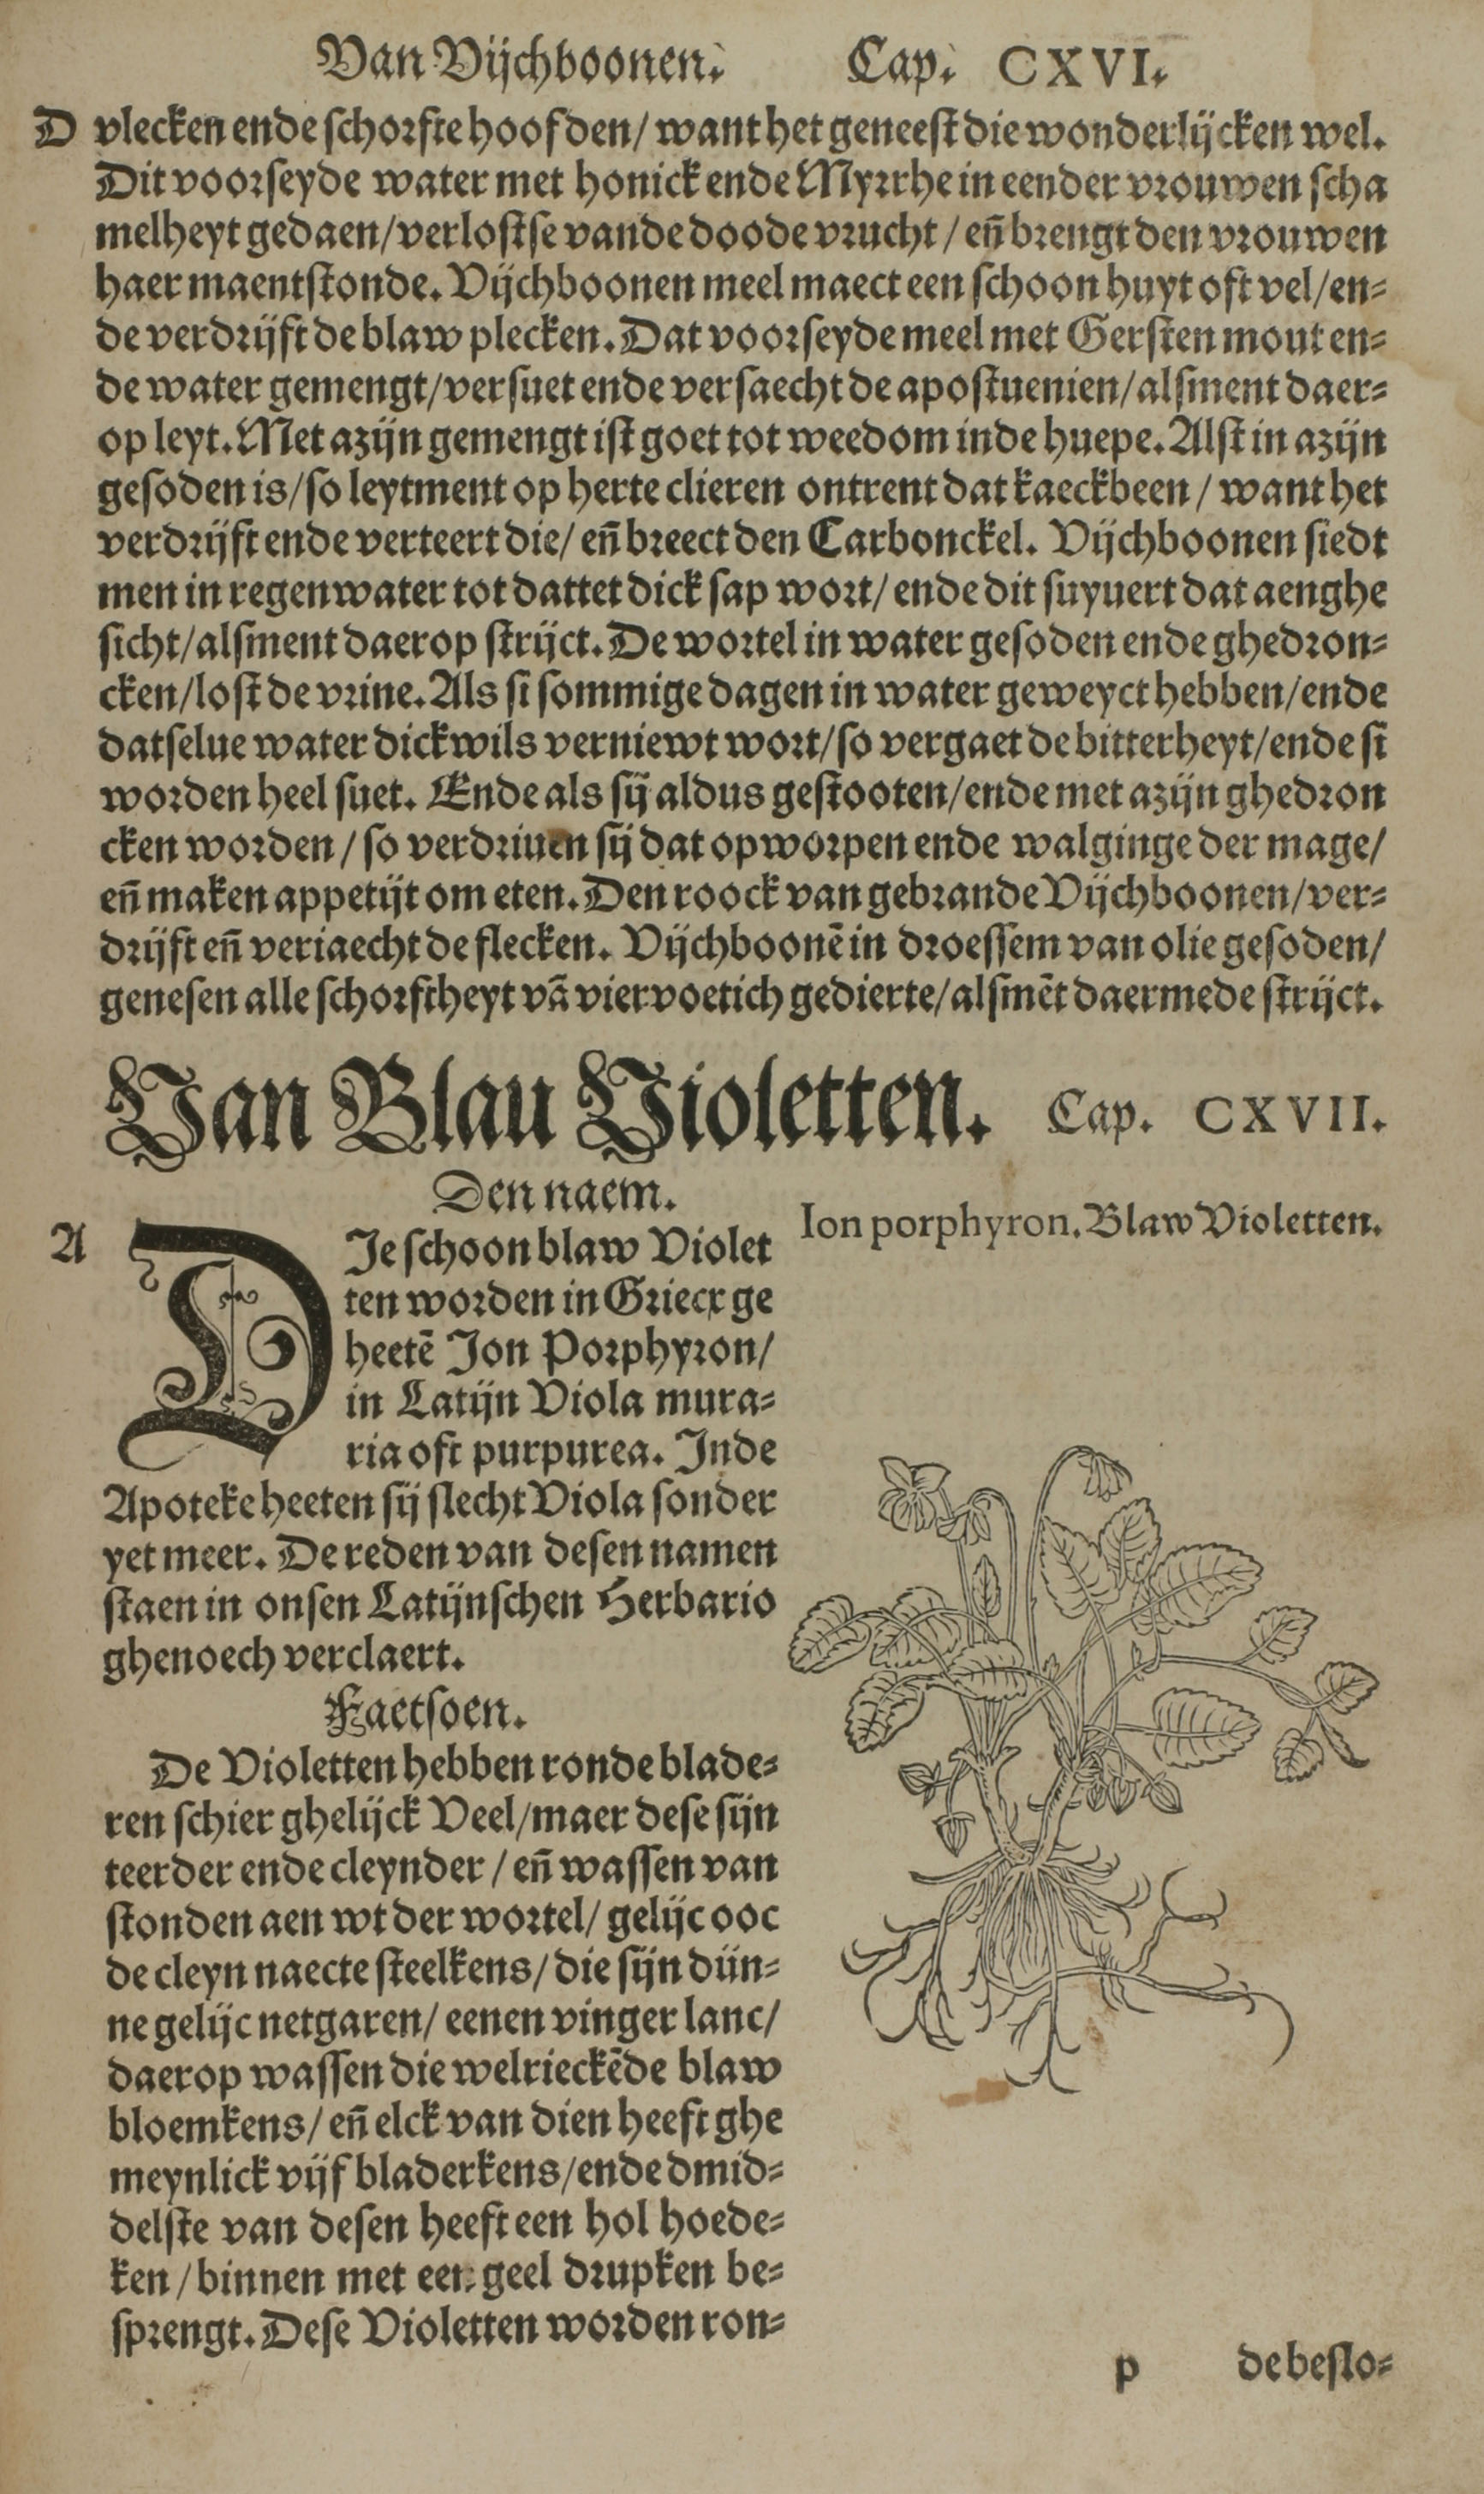 Van Vijchboonen. Cap. CXVI.
D vlecken ende schorfte hoofden/ want het geneest die wonderlijcken wel.
Dit voorseyde water met honick ende Myrrhe in eender vrouwen scha
melheyt gedaen/verlostse vande doode vrucht/ eñ brengt den vrouwen
haer maentstonde. Vijchboonen meel maect een schoon huyt oft vel/en-
de verdrijft de blaw plecken. Dat voorseyde meel met Gersten mout en-
de water gemengt/versuet ende versaecht de apostuenien/alsment daer-
op leyt. Met azijn gemengt ist goet tot weedom inde huepe. Alst in azijn
gesoden is/so leytment op herte clieren ontrent dat kaeckbeen/ want het
verdrijft ende verteert die/ eñ breect den Carbonckel. Vijchboonen siedt
men in regenwater tot dattet dick sap wort/ ende dit suyuert dat aenghe
sicht/alsment daerop strijct. De wortel in water gesoden ende ghedron-
cken/lost de vrine. Als si sommige dagen in water geweyct hebben/ende
datselue water dickwils verniewt wort/so vergaet de bitterheyt/ende si
worden heel suet. Ende als sij aldus gestooten/ende met azijn ghedron
cken worden/ so verdriuen sij dat opworpen ende walginge der mage/
eñ maken appetijt om eten. Den roock van gebrande Vijchboonen/ver-
drijft eñ veriaecht de flecken. Vijchboonē in droessem van olie gesoden/
genesen alle schorftheyt vā viervoetich gedierte/alsmēt daermede strijct.
Van Blau Violetten. Cap. CXVII.
Den naem.
Ion porphyron. Blaw Violetten.
A DJe schoon blaw Violet
ten worden in Griecx ge
heetē Jon Porphyron/
in Latijn Viola mura-
ria oft purpurea. Inde
Apoteke heeten sij slecht Viola sonder
yet meer. De reden van desen namen
staen in onsen Latijnschen Herbario
ghenoech verclaert.
Faetsoen.
De Violetten hebben ronde blade-
ren schier ghelijck Veel/maer dese sijn
teerder ende cleynder/ eñ wassen van
stonden aen wt der wortel/ gelijc ooc
de cleyn naecte steelkens/ die sijn dün-
ne gelijc netgaren/ eenen vinger lanc/
daerop wassen die welrieckēde blaw
bloemkens/ eñ elck van dien heeft ghe
meynlick vijf bladerkens/ende dmid-
delste van desen heeft een hol hoede-
ken/binnen met een geel drupken be-
sprengt. Dese Violetten worden ron-
p debeslo-